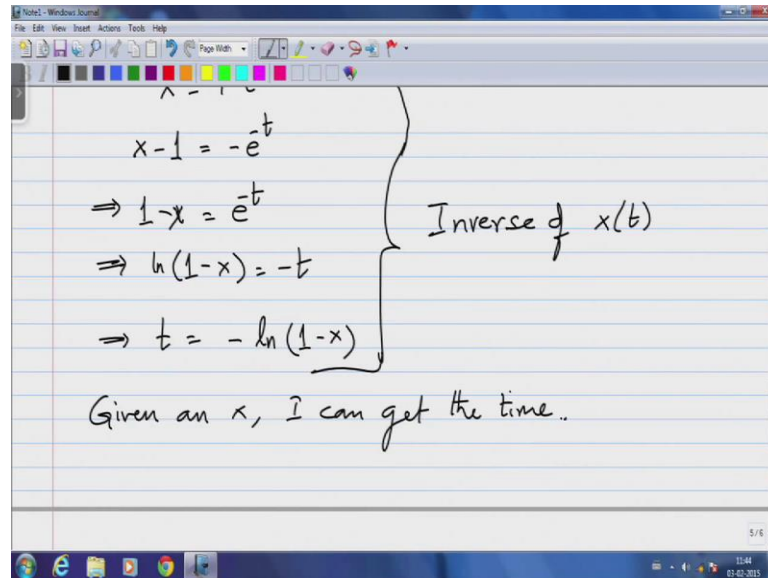 Note1 - Windows Journal
File Edit View Insert Actions Tools Help
Page Width
x - 1 = -e^-t
⇒ 1-x = e^-t
⇒ ln(1-x) = -t
⇒ t = - ln(1-x)
Inverse of x(t)
Given an x, I can get the time..
5/6
11:44
03-02-2015